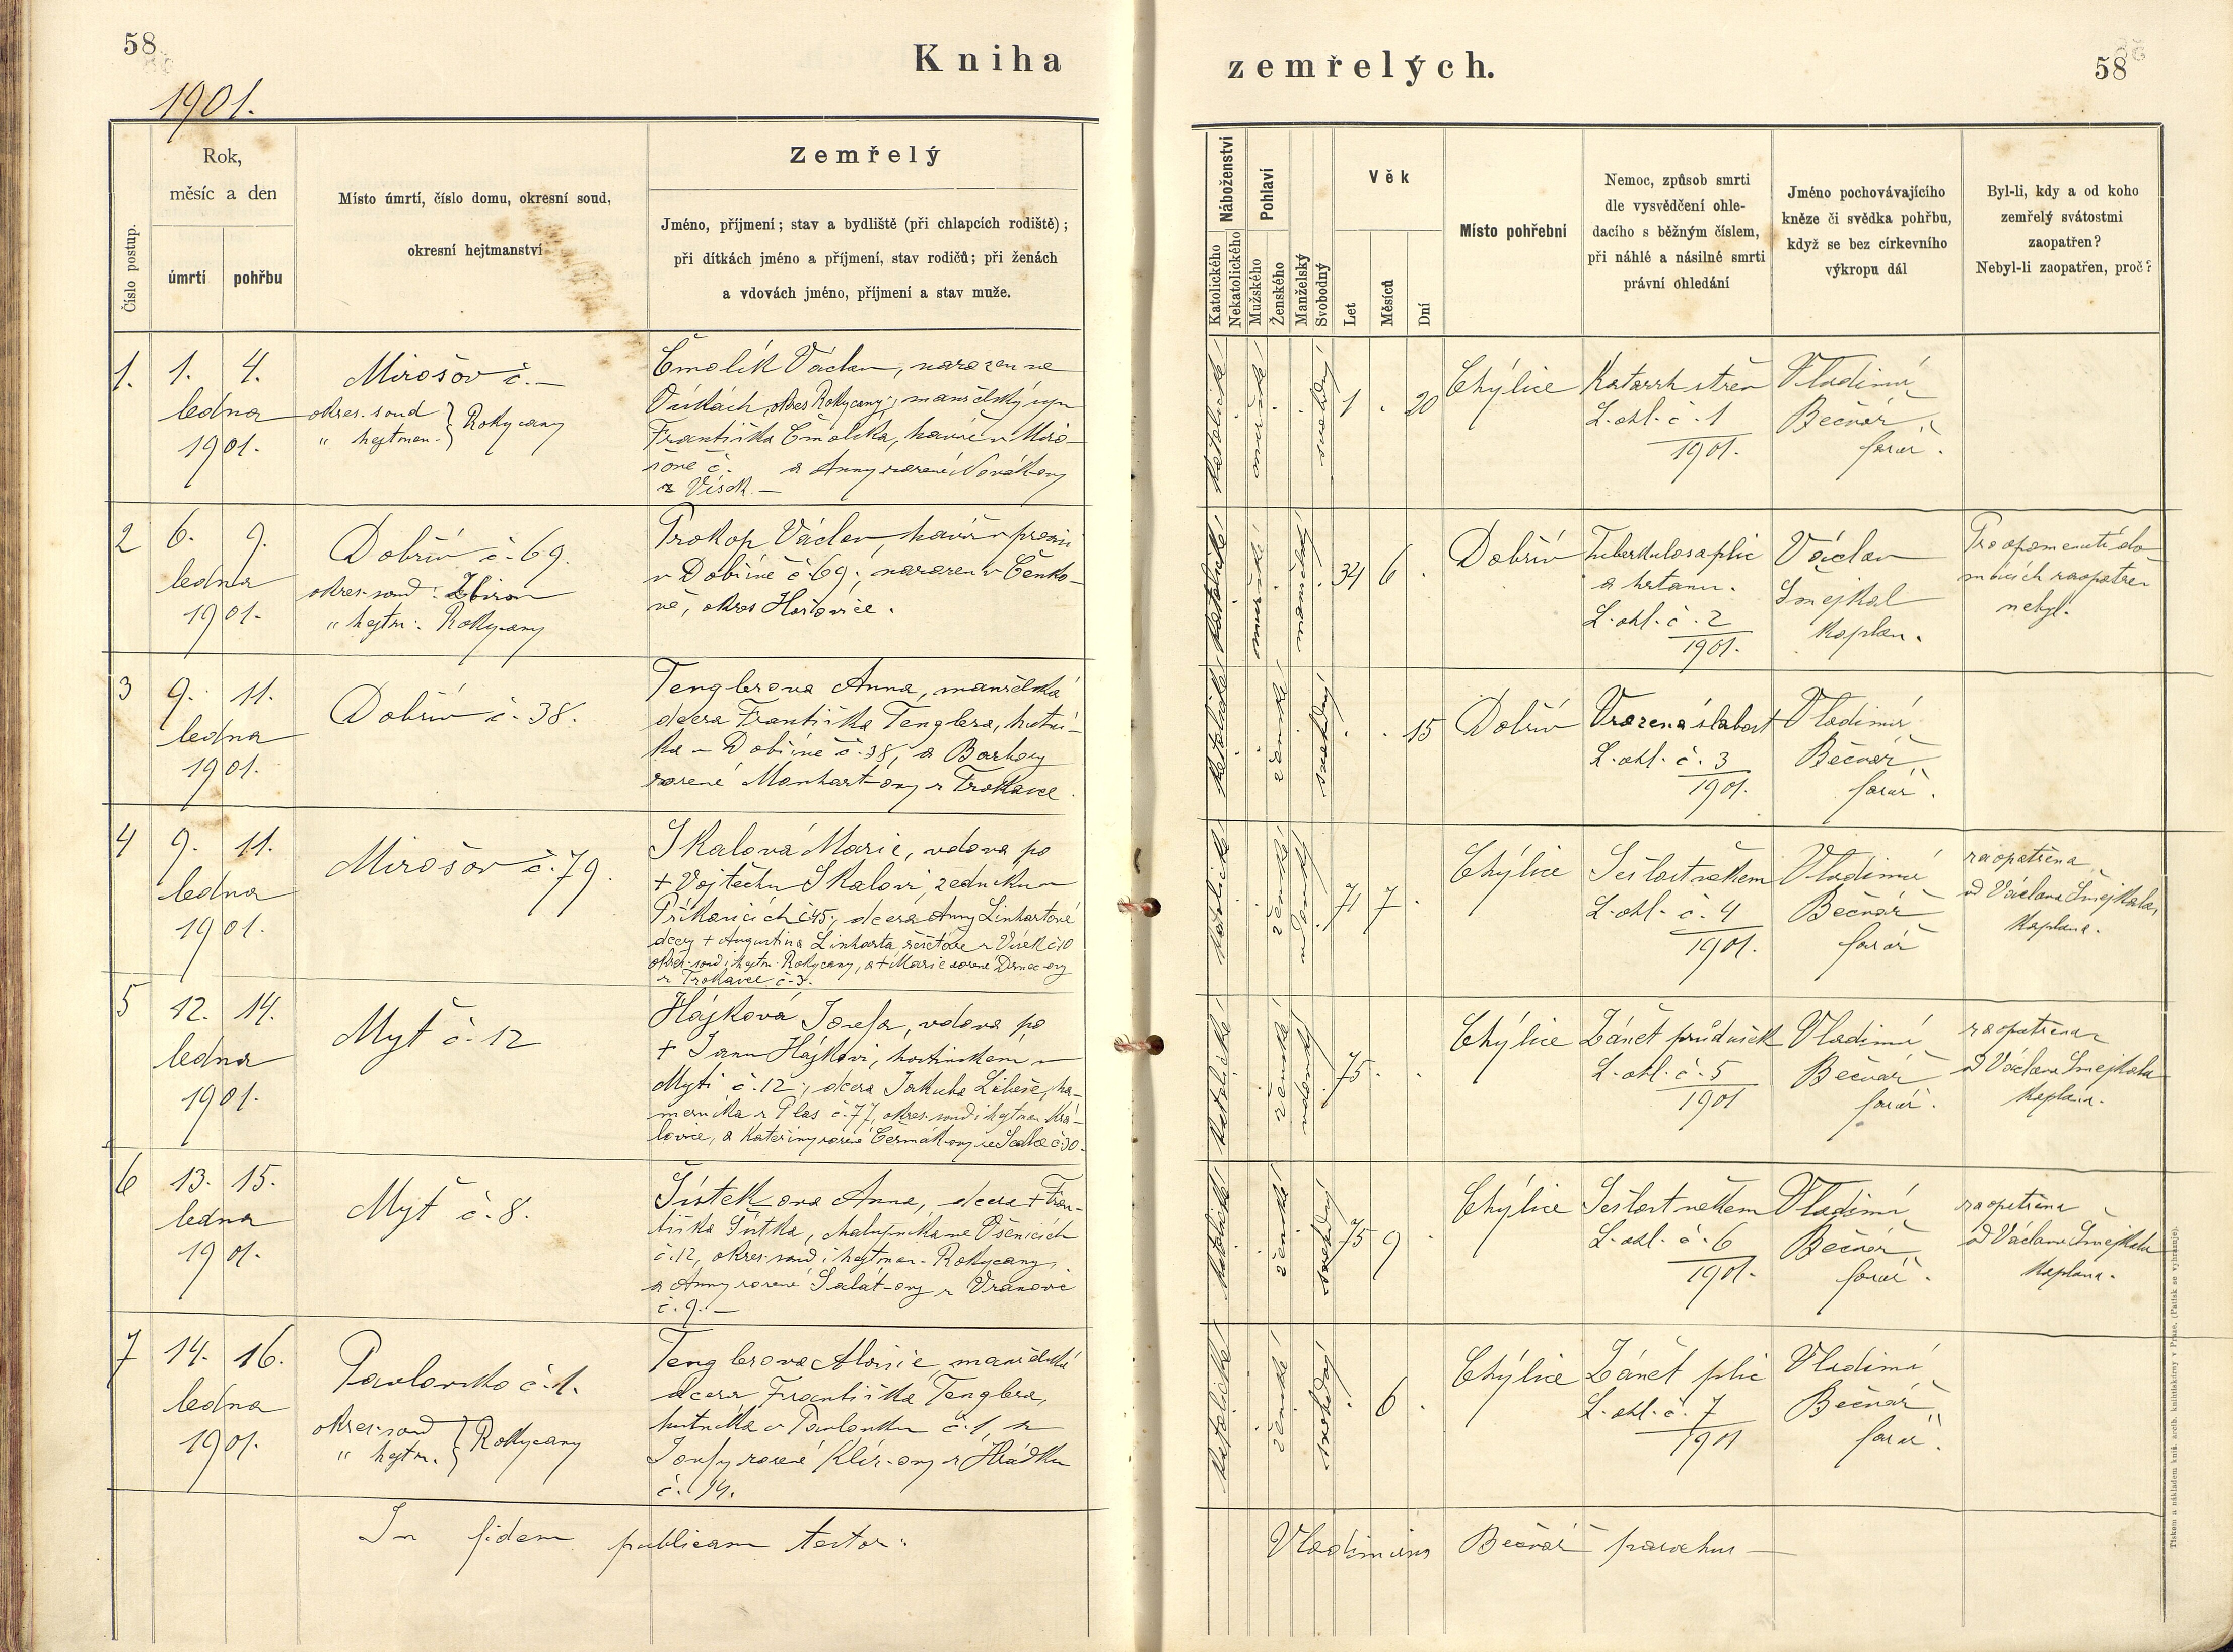 58
Kniha
zemřelých.
58
1901.
Číslo postup.
Rok,
měsíc a den
úmrtí
pohřbu
Místo úmrtí, číslo domu, okresní soud,
okresní hejtmanství
Zemřelý
Jméno, příjmení; stav a bydliště (při chlapcích rodiště);
při dítkách jméno a příjmení, stav rodičů; při ženách
a vdovách jméno, příjmení a stav muže.
Náboženství
Katolického
Nekatolického
Pohlaví
Mužského
Ženského
Manželský
Svobodný
Věk
Let
Měsíců
Dní
Místo pohřební
Nemoc, způsob smrti
dle vysvědčení ohle-
dacího s běžným číslem,
při náhlé a násilné smrti
právní ohledání
Jméno pochovávajícího
kněze či svědka pohřbu,
když se bez církevního
výkropu dál
Byl-li, kdy a od koho
zemřelý svátostmi
zaopatřen?
Nebyl-li zaopatřen, proč?
1.
1. 4.
ledna
1901.
Mirošov č. –
okres. soud
" hejtman. } Rokycany
Čmolík Václav, narozen ve
Vískách, okres Rokycany, manželský syn
Františka Čmolíka, havíře v Miro-
šově č. a Anny rozené Novákovy
z Vísek. –
katolické
mužské
svobodný
1 . 20
Chýlice
Katarrh střev
L. ohl. č. 1
1901.
Vladimír
Bečvář
farář.
2
6. 9.
ledna
1901.
Dobřív č. 69.
okres. soud: Zbiroh
" hejtm. Rokycany
Prokop Václav, havíř v
v Dobřívě č. 69., narozen v Čenko-
vě, okres Hořovice.
katolické
mužské
manželský
34 6 .
Dobřív
Tuberkulosa plic
a hrtanu.
L. ohl. č. 2
1901.
Václav
Šmejkal
kaplan.
Pro opomenutí do-
mácích zaopatřen
nebyl.
3
9. 11.
ledna
1901.
Dobřív č. 38.
Tenglerova Anna, manželská
dcera Františka Tenglera, hutní-
ka v Dobřívě č. 38, a Barbory
rozené Manhart-ovy z Trokavce.
katolické
ženské
svobodný
. . 15
Dobřív
Vrozená slabost
L. ohl. č. 3
1901.
Vladimír
Bečvář
farář.
4
9. 11.
ledna
1901.
Mirošov č. 79.
Skalová Marie, vdova po
+ Vojtěchu Skalovi, zedníku v
Příkosicích č 45., dcera Anny Linhartové
dcery + Augustina Linharta z Vísek č 10
okres. soud i hejtm. Rokycany, a + Marie rozené
z Trokavce č. 3.
katolické
ženské
vdovský
71 7 .
Chýlice
Sešlost věkem
L. ohl. č. 4
1901.
Vladimír
Bečvář
farář
zaopatřena
od Václava Šmejkala,
kaplana.
5
12. 14.
ledna
1901.
Myť č. 12
Hájková Josefa, vdova po
+ Janu Hájkovi, hostinském v
Myti č. 12., dcera Jakuba, ha-
merníka z Plas č. 77, okres. soud i hejtman. Kra-
lovice, a Kateřiny rozené Čermákovy ze Sedlce č 30.
katolické
ženské
vdovský
75 . .
Chýlice
Zánět průdušek
L. ohl. č. 5
1901
Vladimír
Bečvář
farář.
zaopatřena
od Václava Šmejkala
kaplana.
6
13. 15.
ledna
1901.
Myť č. 8.
Šístekova Anna, dcera + Fran-
tiška Šístka, chalupníka ve Všenicích
č. 12, okres. soud i hejtman. Rokycany,
a Anny rozené Salát-ovy z Vranovic
č. 9. –
katolické
ženské
svobodný
75 9 .
Chýlice
Sešlost věkem
L. ohl. č. 6
1901.
Vladimír
Bečvář
farář.
zaopatřena
od Václava Šmejkala
kaplana.
7
14. 16.
ledna
1901.
Pavlovsko č. 1.
okres. soud
" hejtm. } Rokycany
Tenglerova Aloisie, manželská
dcera Františka Tenglera,
hutníka v Pavlovsku č. 1, a
Josefy rozené z Hrádku
č. 14.
katolické
ženské
svobodný
. 6 .
Chýlice
Zánět plic
L. ohl. č. 7
1901
Vladimír
Bečvář
farář.
In fidem publicam testor:
Vladimirus Bečvář parochus –
Tiskem a nákladem kníž. arcib. knihtiskárny v Praze. (Patisk se vyhrazuje).